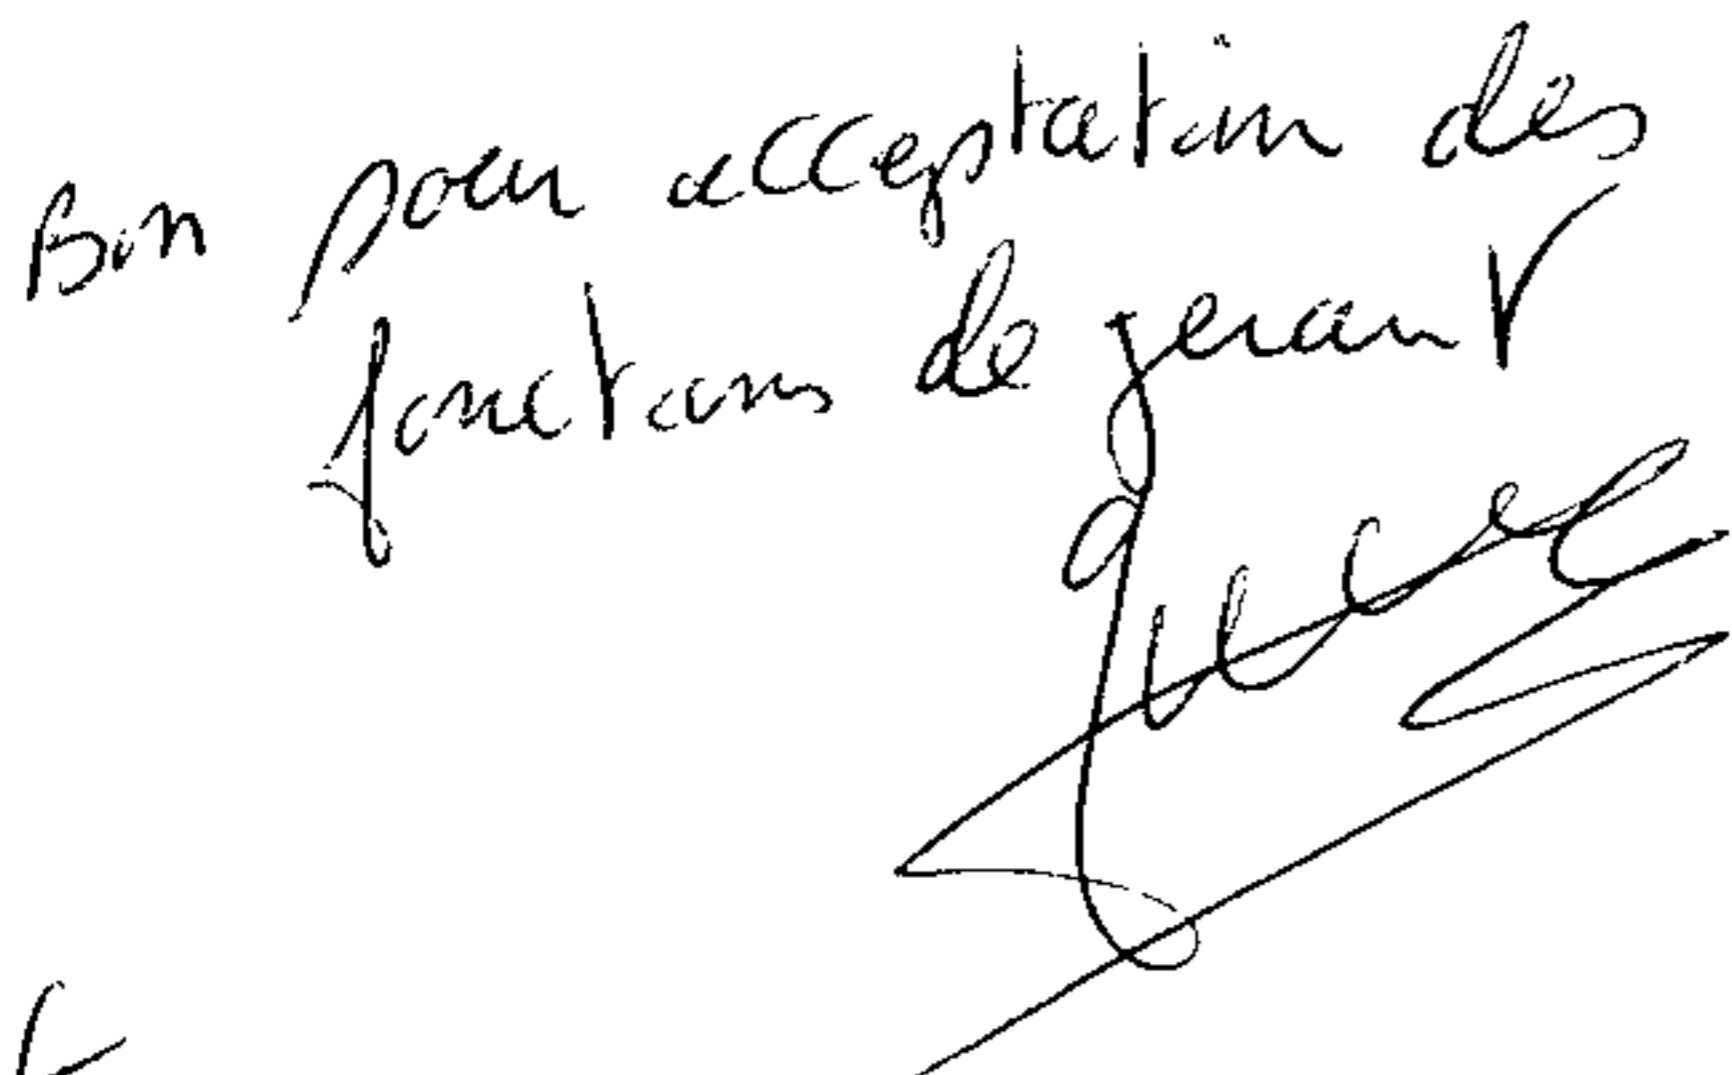 Bon pour acceptation des
fonctions de gerant